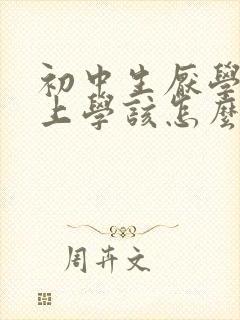 初中生厭學
上學該怎麼
周卉文